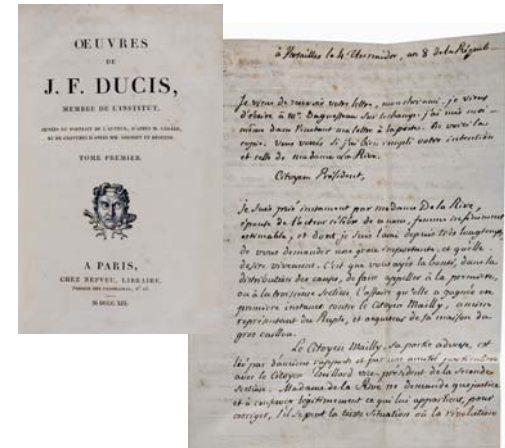 OEUVRES
DE
J. F. DUCIS,
MEMBRE DE L'INSTITUT,
ORNÉES DU PORTRAIT DE L'AUTEUR, D'APRÈS M. GÉRARD,
ET DE GRAVURES D'APRÈS MM. GIRODET ET DESENNE.
TOME PREMIER.
A PARIS,
CHEZ NEPVEU, LIBRAIRE,
PASSAGE DES PANORAMAS, N° 26.
M DCCC XIX.
à Versailles le 4 Thermidor, an 8 de la Républ
Je viens de recevoir votre lettre, mon cher ami. je viens
d'écrire à Mr. Daguesseau sur le champ. j'ai mis moi-
même dans l'instant ma lettre à la poste. En voici la
copie. Vous verrez si j'ai bien rempli votre intention
et celle de madame La Rive.
Citoyen Président,
je suis prié instament par madame De la Rive,
épouse de l'acteur célèbre de ce nom, femme infiniment
estimable, et dont je suis l'ami depuis très longtemps,
de vous demander une grace importante, et qu'elle
desire vivement. C'est que vous ayez la bonté, dans la
distribution des causes, de faire appeller à la première,
ou à la troisième section l'affaire qu'elle a gagnée en
première instance contre le Citoyen Mailly, ancien
représentant du Peuple, et acquereur de sa maison du
gros caillou.
Le Citoyen Mailly, sa partie adverse, est
lié par d'anciens rapports et par une amitié particulière
avec le Citoyen vice-président de la seconde
section. Madame de la Rive ne demande que justice
et à conserver légitimement ce qui lui appartient, pour
corriger, s'il se peut la triste situation où la révolution